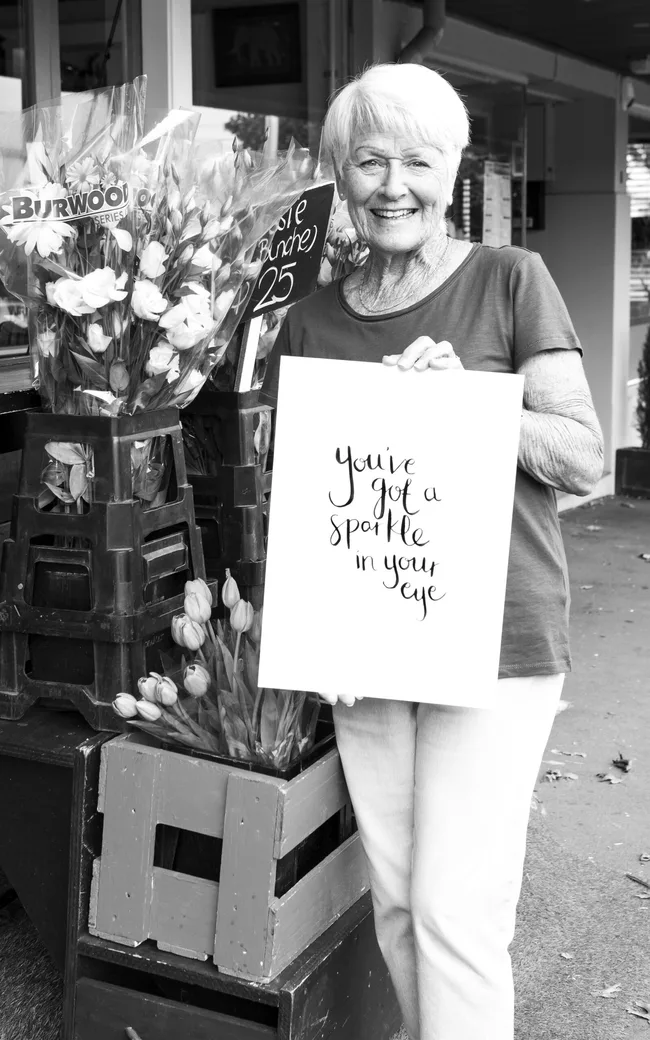 BURWOOD
SERIES
Bunche)
25
You've
got a
sparkle
in your
eye